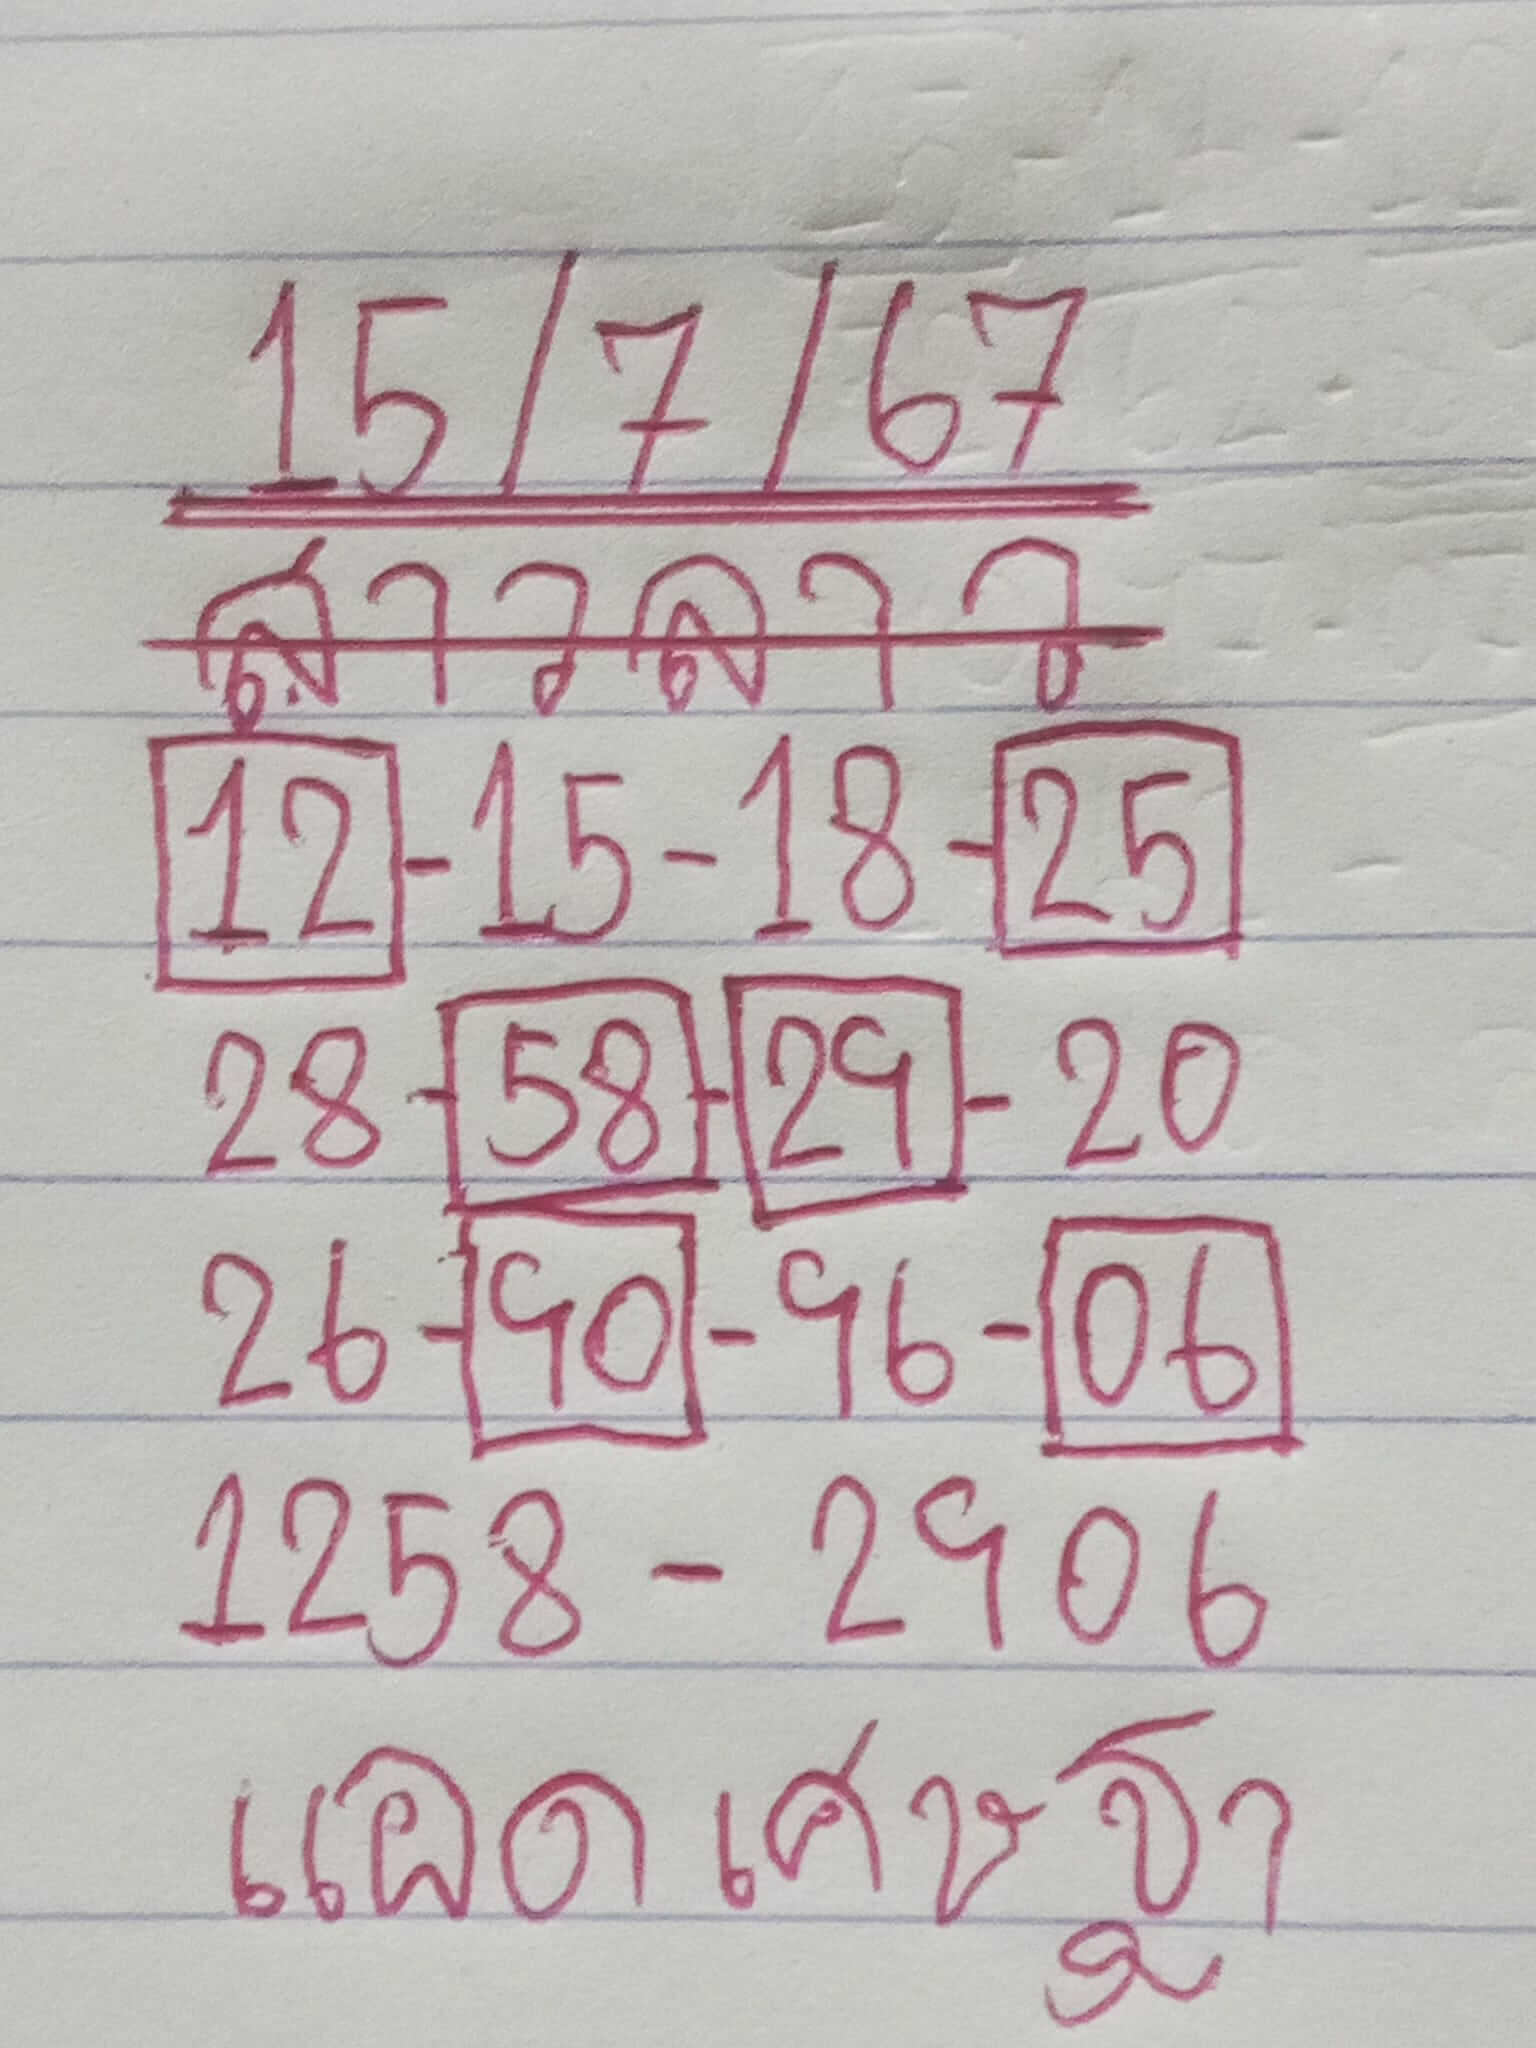 15/7/67
ลาวลาว
12-15-18-25
28-58-29-20
26-90-96-06
1258-2906
แฝดเศษฐา